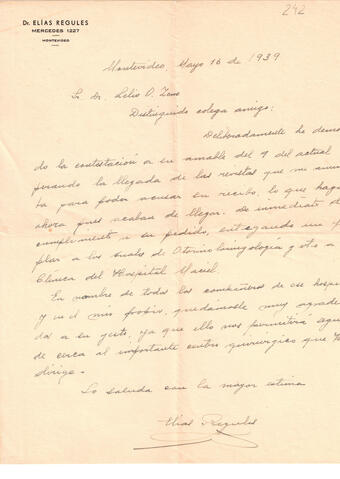 242
Dr. ELÍAS REGULES
MERCEDES 1227
MONTEVIDEO
Montevideo, Mayo 16 de 1939
Sr. Dr. Lelio O. Zeno
Distinguido colega amigo:
Deliberadamente he demo
do la contestación a su amable del 9 del actual
perando la llegada de las revistas que me anun
ta para poder acusar su recibo, lo que hago
ahora pues acaban de llegar. De inmediato di
cumplimiento a su pedido, entregando un
plar a los Anales de Otorinolaringología y otro a
Clínica del Hospital Maciel.
En nombre de todos los compañeros de ese hospi
y en el mío propio, quedámosle muy agrade
do a su gesto, ya que ello nos permitirá
de cerca al importante centro quirúrgico que
dirige.
Lo saluda con la mayor estima
Elías Regules